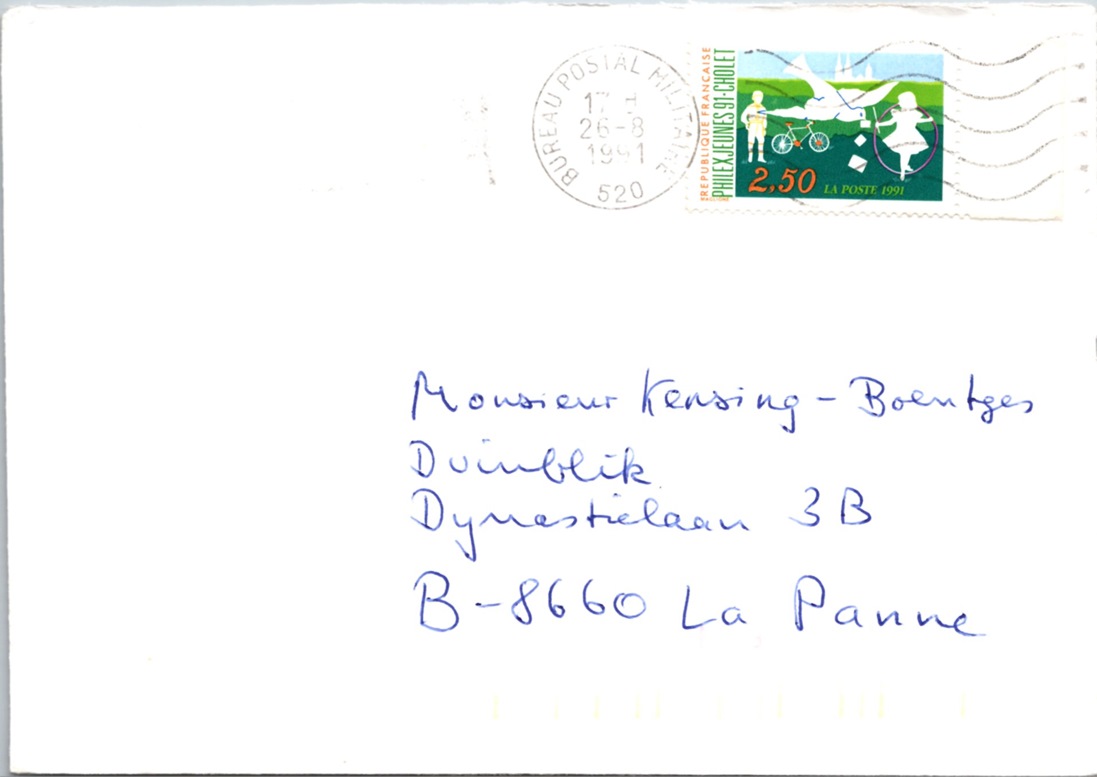 BUREAU POSTAL MILITAIRE
17 H
26-8
1991
520
REPUBLIQUE FRANÇAISE
PHILEXJEUNES 91-CHOLET
2,50 LA POSTE 1991
Monsieur Kensing - Boentges
Duinblik
Dynastielaan 3B
B-8660 La Panne